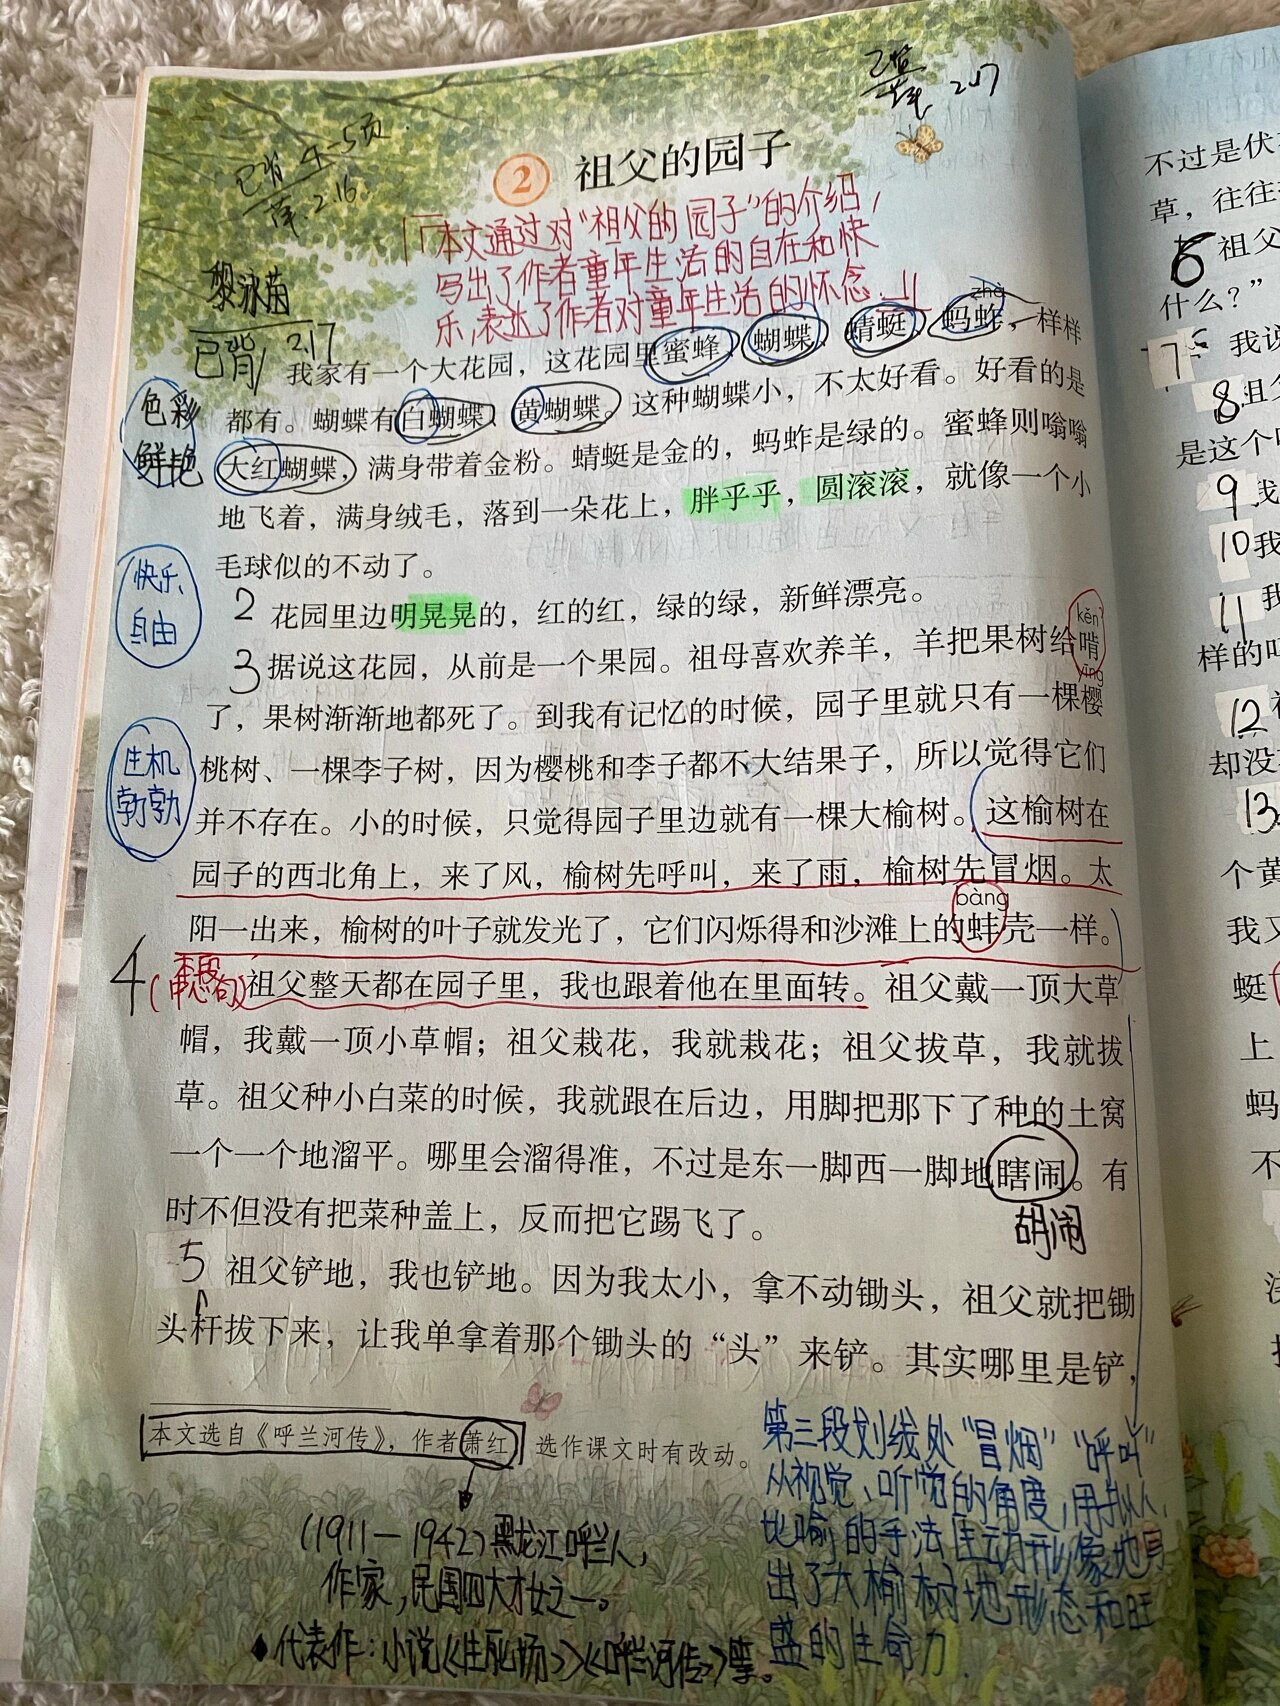 已背 2.17
已背 4-5页
2.16.
② 祖父的园子
本文通过对“祖父的园子”的介绍，
写出了作者童年生活的自在和快
乐，表达了作者对童年生活的怀念。
黎泳茵
已背 2.17
zhà
我家有一个大花园，这花园里蜜蜂、蝴蝶、蜻蜓、蚂蚱，样样
都有。蝴蝶有白蝴蝶、黄蝴蝶。这种蝴蝶小，不太好看。好看的是
大红蝴蝶，满身带着金粉。蜻蜓是金的，蚂蚱是绿的。蜜蜂则嗡嗡
地飞着，满身绒毛，落到一朵花上，胖乎乎，圆滚滚，就像一个小
毛球似的不动了。
色彩
鲜艳
快乐、
自由
2 花园里边明晃晃的，红的红，绿的绿，新鲜漂亮。
kěn
3 据说这花园，从前是一个果园。祖母喜欢养羊，羊把果树给啃
yīng
了，果树渐渐地都死了。到我有记忆的时候，园子里就只有一棵樱
桃树、一棵李子树，因为樱桃和李子都不大结果子，所以觉得它们
并不存在。小的时候，只觉得园子里边就有一棵大榆树。这榆树在
园子的西北角上，来了风，榆树先呼叫，来了雨，榆树先冒烟。太
bàng
阳一出来，榆树的叶子就发光了，它们闪烁得和沙滩上的蚌壳一样。
生机
勃勃
4 (本段
中心句) 祖父整天都在园子里，我也跟着他在里面转。祖父戴一顶大草
帽，我戴一顶小草帽；祖父栽花，我就栽花；祖父拔草，我就拔
草。祖父种小白菜的时候，我就跟在后边，用脚把那下了种的土窝
一个一个地溜平。哪里会溜得准，不过是东一脚西一脚地瞎闹。有
时不但没有把菜种盖上，反而把它踢飞了。
胡闹
5 祖父铲地，我也铲地。因为我太小，拿不动锄头，祖父就把锄
头杆拔下来，让我单拿着那个锄头的“头”来铲。其实哪里是铲，
本文选自《呼兰河传》，作者萧红，选作课文时有改动。
(1911—1942) 黑龙江呼兰人，
作家，民国四大才女之一。
◆代表作：小说《生死场》《呼兰河传》等。
第三段划线处“冒烟”“呼叫”
从视觉、听觉的角度，用拟人、
比喻的手法生动形象地写
出了大榆树地形态和旺
盛的生命力.
4
不过是伏
草，往往
6 祖父
什么？”
7 我说
8 祖父
是这个
9 我
10 我
11 我
样的
12
却没
13
个黄
我又
蜓
上
蚂
不